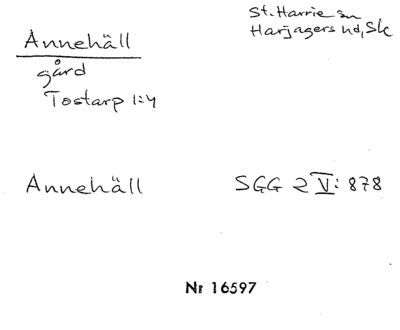 Annehäll
gård
Tostarp 1:4
St. Harrie sn
Harjagers hd, Sk
Annehäll
SGG 2 V: 878
Nr 16597